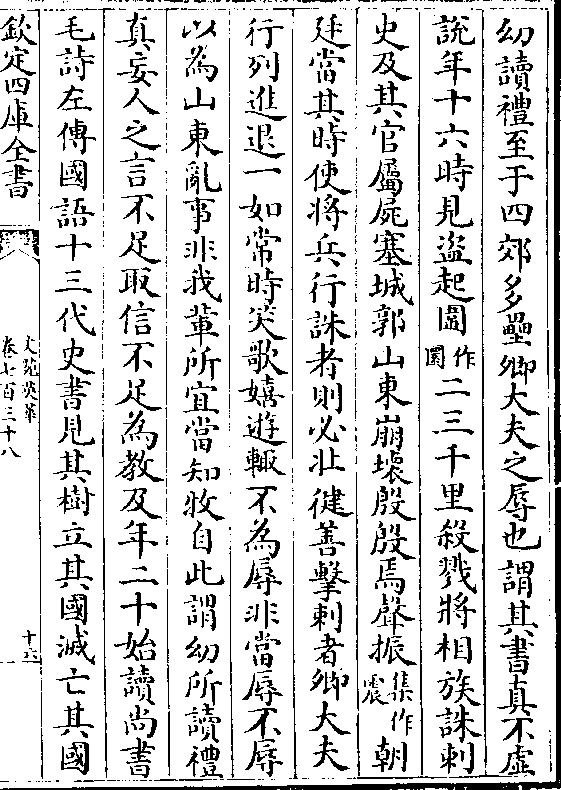 幼讀禮至于四郊多壘卿大夫之辱也謂其書真不虛
說年十六時見盗起圖作圜二三千里殺戮將相族誅刺
史及其官屬屍塞城郭山東崩壞殷殷焉聲振集作震朝
廷當其時使將兵行誅者則必壯徤善擊刺者卿大夫
行列進退一如常時笑歌嬉遊輙不為辱非當辱不辱
以為山東亂事非我輩所宜當知牧自此謂幼所讀禮
真妄人之言不足取信不足為教及年二十始讀尚書
毛詩左傳國語十三代史書見其樹立其國滅亡其國
欽定四庫全書
文苑英華
卷七百三十八
十六